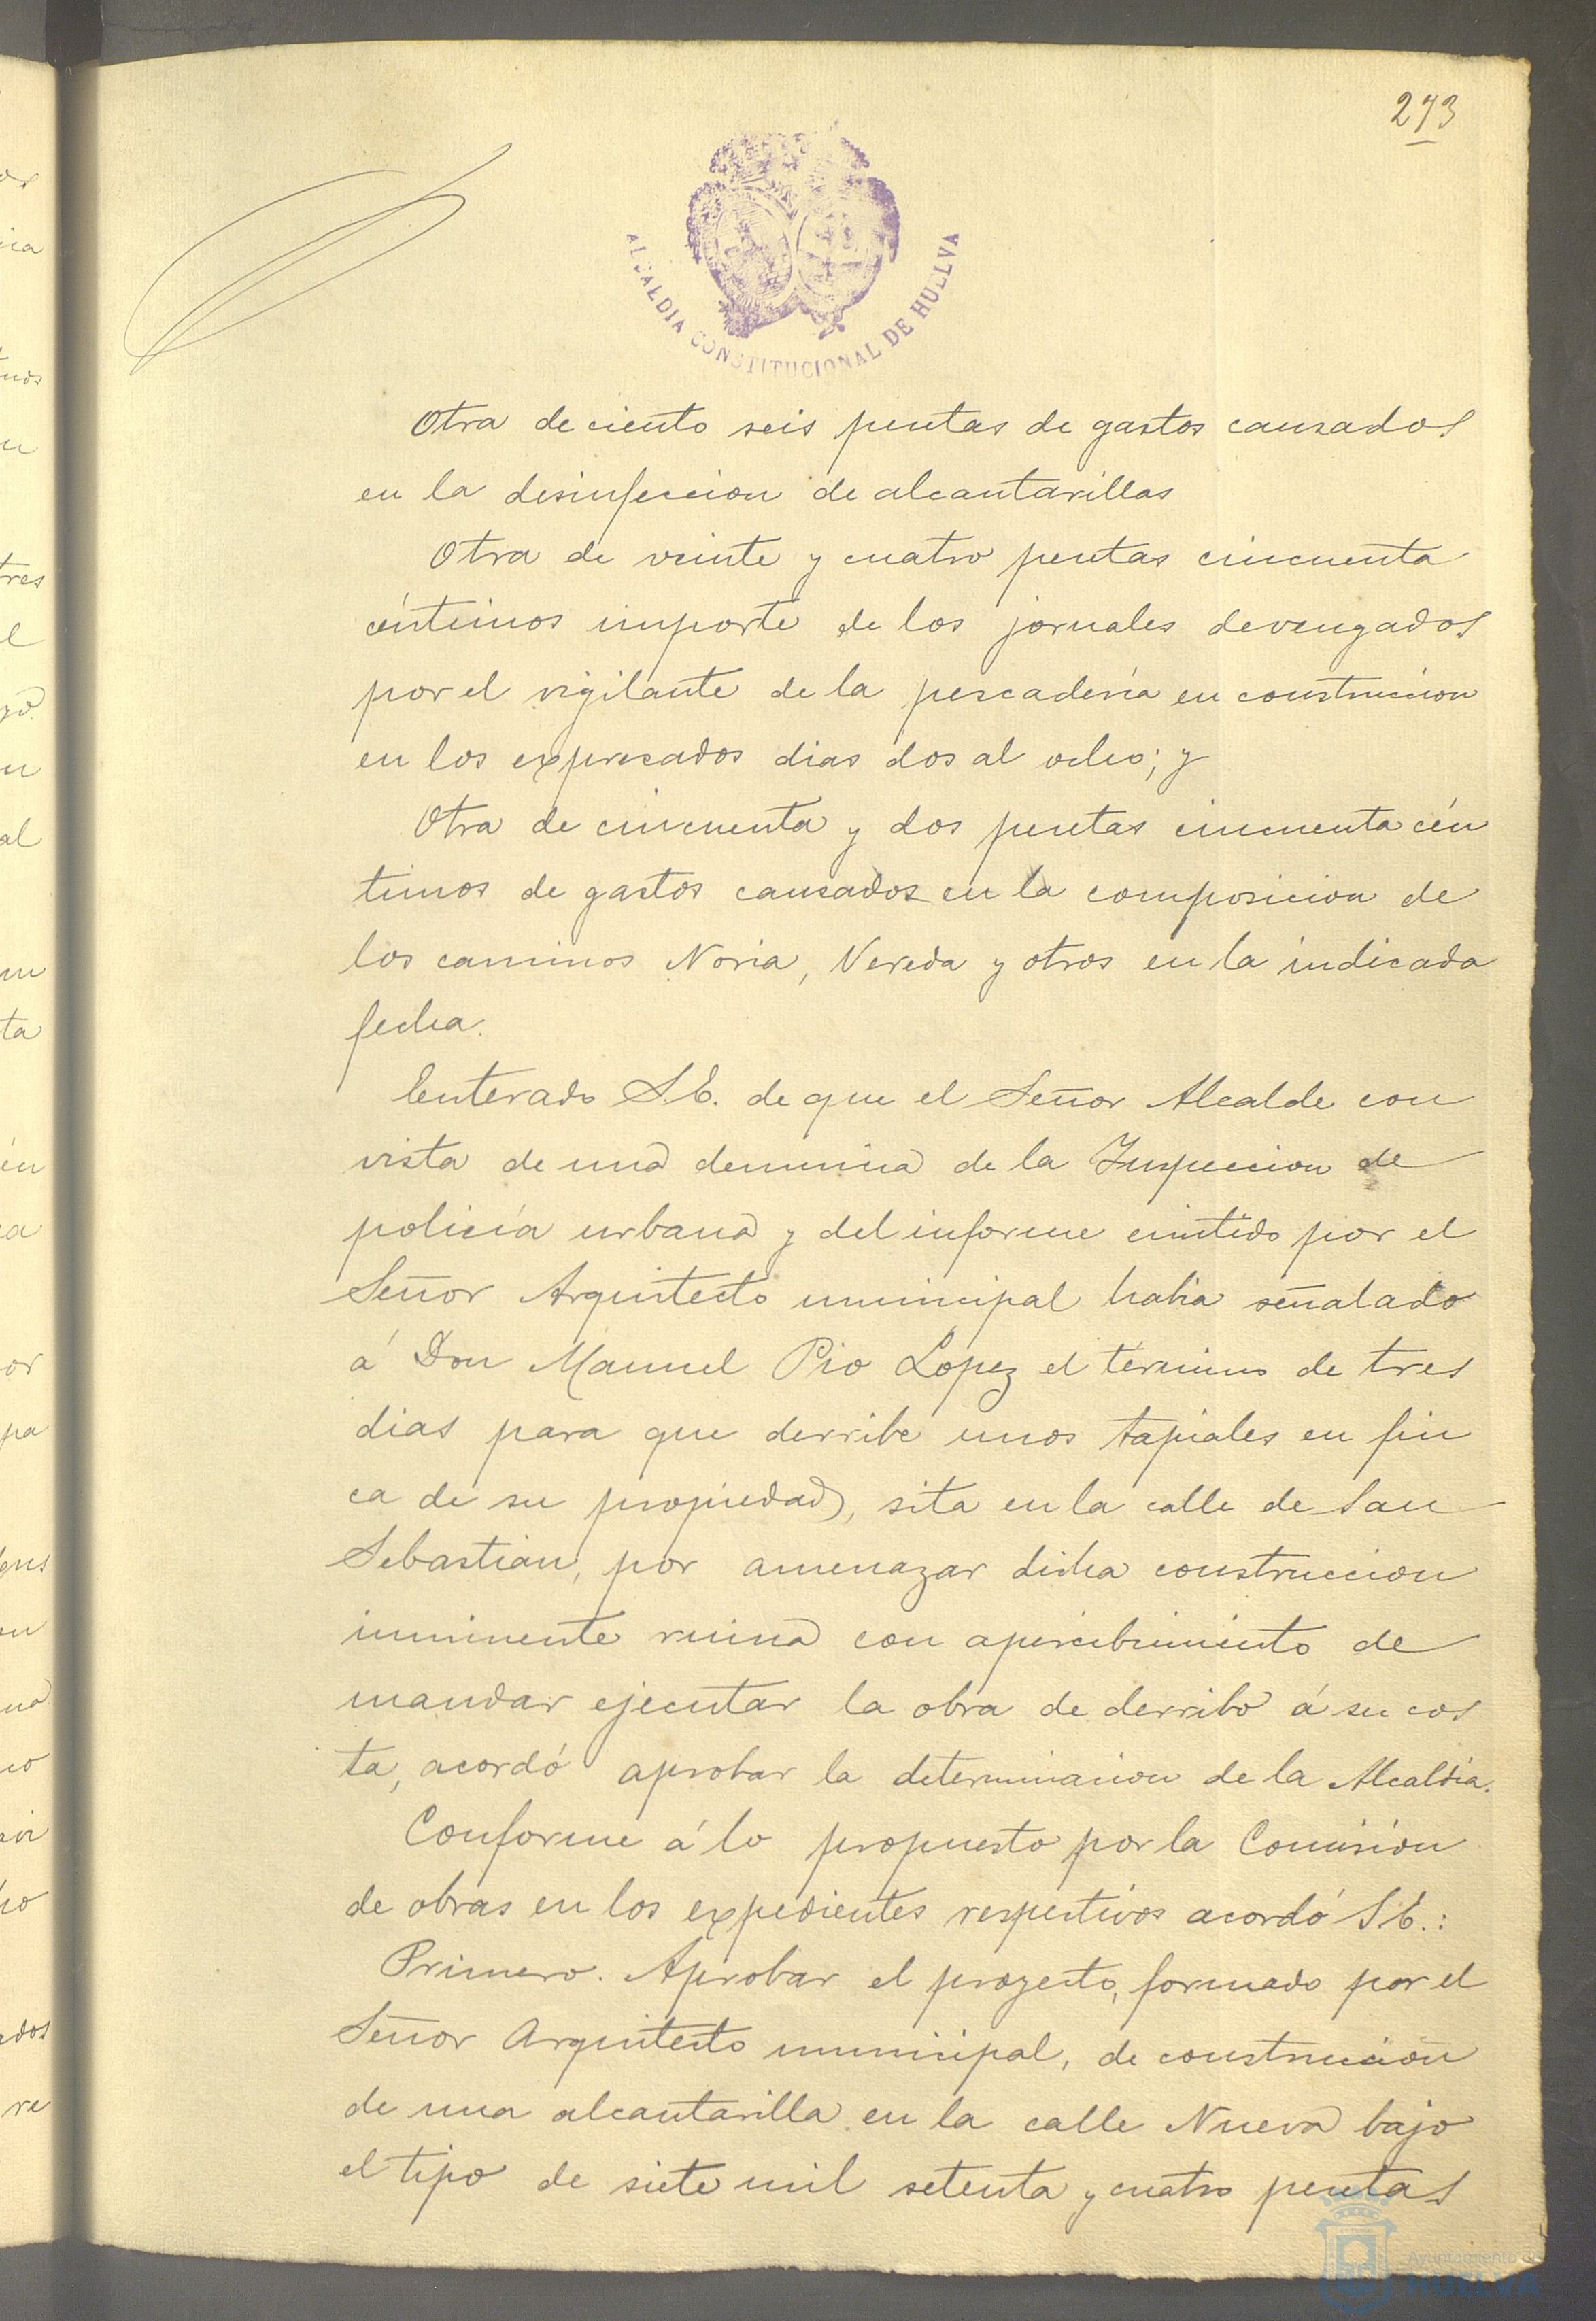 273
ALCALDIA CONSTITUCIONAL DE HUELVA
Otra de ciento seis pesetas de gastos causados
en la desinfeccion de alcantarillas
Otra de veinte y cuatro pesetas cincuenta
céntimos importe de los jornales devengados
por el vigilante de la pescadería en construccion
en los expresados dias dos al ocho; y
Otra de cincuenta y dos pesetas cincuenta cén
timos de gastos causados en la composicion de
los caminos Noria, Vereda y otros en la indicada
fecha.
Enterado S.E. de que el Señor Alcalde con
vista de una denuncia de la Inspeccion de
policía urbana y del informe emitido por el
Señor Arquitecto municipal habia señalado
á Don Manuel Pio Lopez el término de tres
dias para que derribe unos tapiales en fin
ca de su propiedad, sita en la calle de San
Sebastian, por amenazar dicha construccion
inminente ruina con apercibimiento de
mandar ejecutar la obra de derribo á su cos
ta, acordó aprobar la determinacion de la Alcaldia.
Conforme á lo propuesto por la Comision
de obras en los expedientes respectivos acordó S.E.:
Primero. Aprobar el proyecto, formado por el
Señor Arquitecto municipal, de construccion
de una alcantarilla en la calle Nueva bajo
el tipo de siete mil setenta y cuatro pesetas
Ayuntamiento de
HUELVA